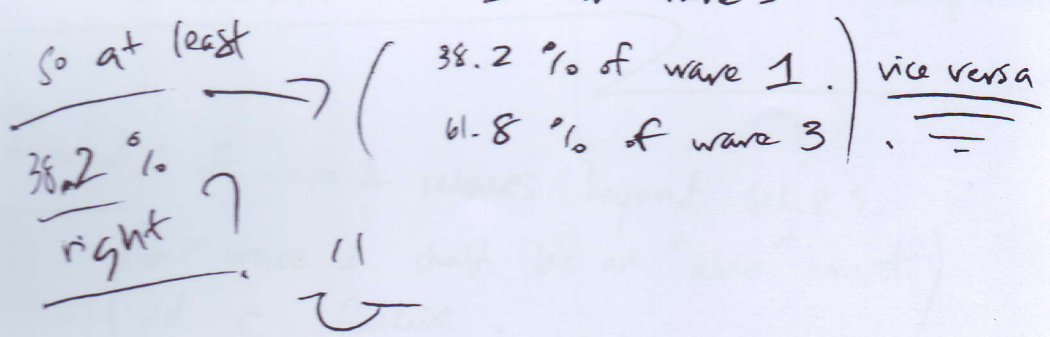 so at least
38.2 % of wave 1.
61.8 % of wave 3.
vice versa
38.2 %
right ?